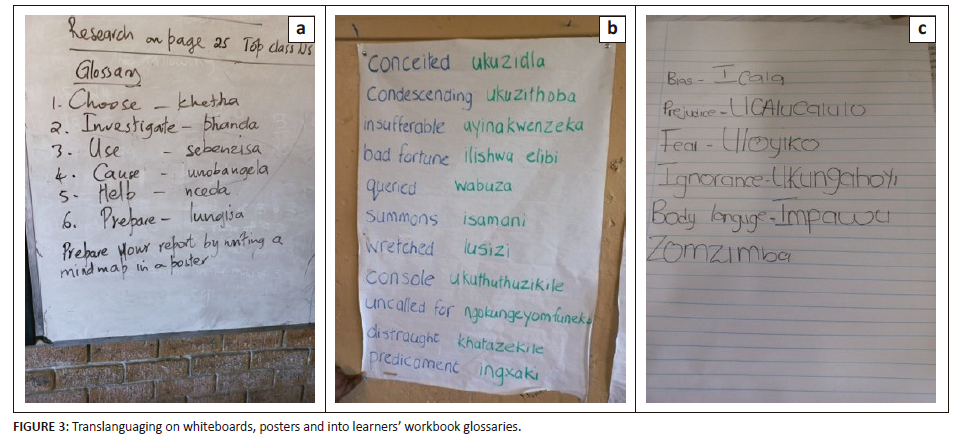 a
Research on page 25 Top class NS
Glossary
1. Choose – khetha
2. Investigate – phanda
3. Use – sebenzisa
4. Cause – unobangela
5. Help – nceda
6. Prepare – lungisa
Prepare your report by writing a
mindmap in a poster
b
conceited ukuzidla
Condescending ukuzithoba
insufferable ayinakwenzeka
bad fortune ilishwa elibi
queried wabuza
summons isamani
wretched lusizi
console ukuthuthuzikile
uncalled for ngokungeyomfuneko
distraught khatazekile
predicament ingxaki
c
Bias - ICala
Prejudice - UCAlucalulo
Fear - Uloyiko
Ignorance - UKungahoyi
Body languge - Impawu
Zomzimba
FIGURE 3: Translanguaging on whiteboards, posters and into learners’ workbook glossaries.